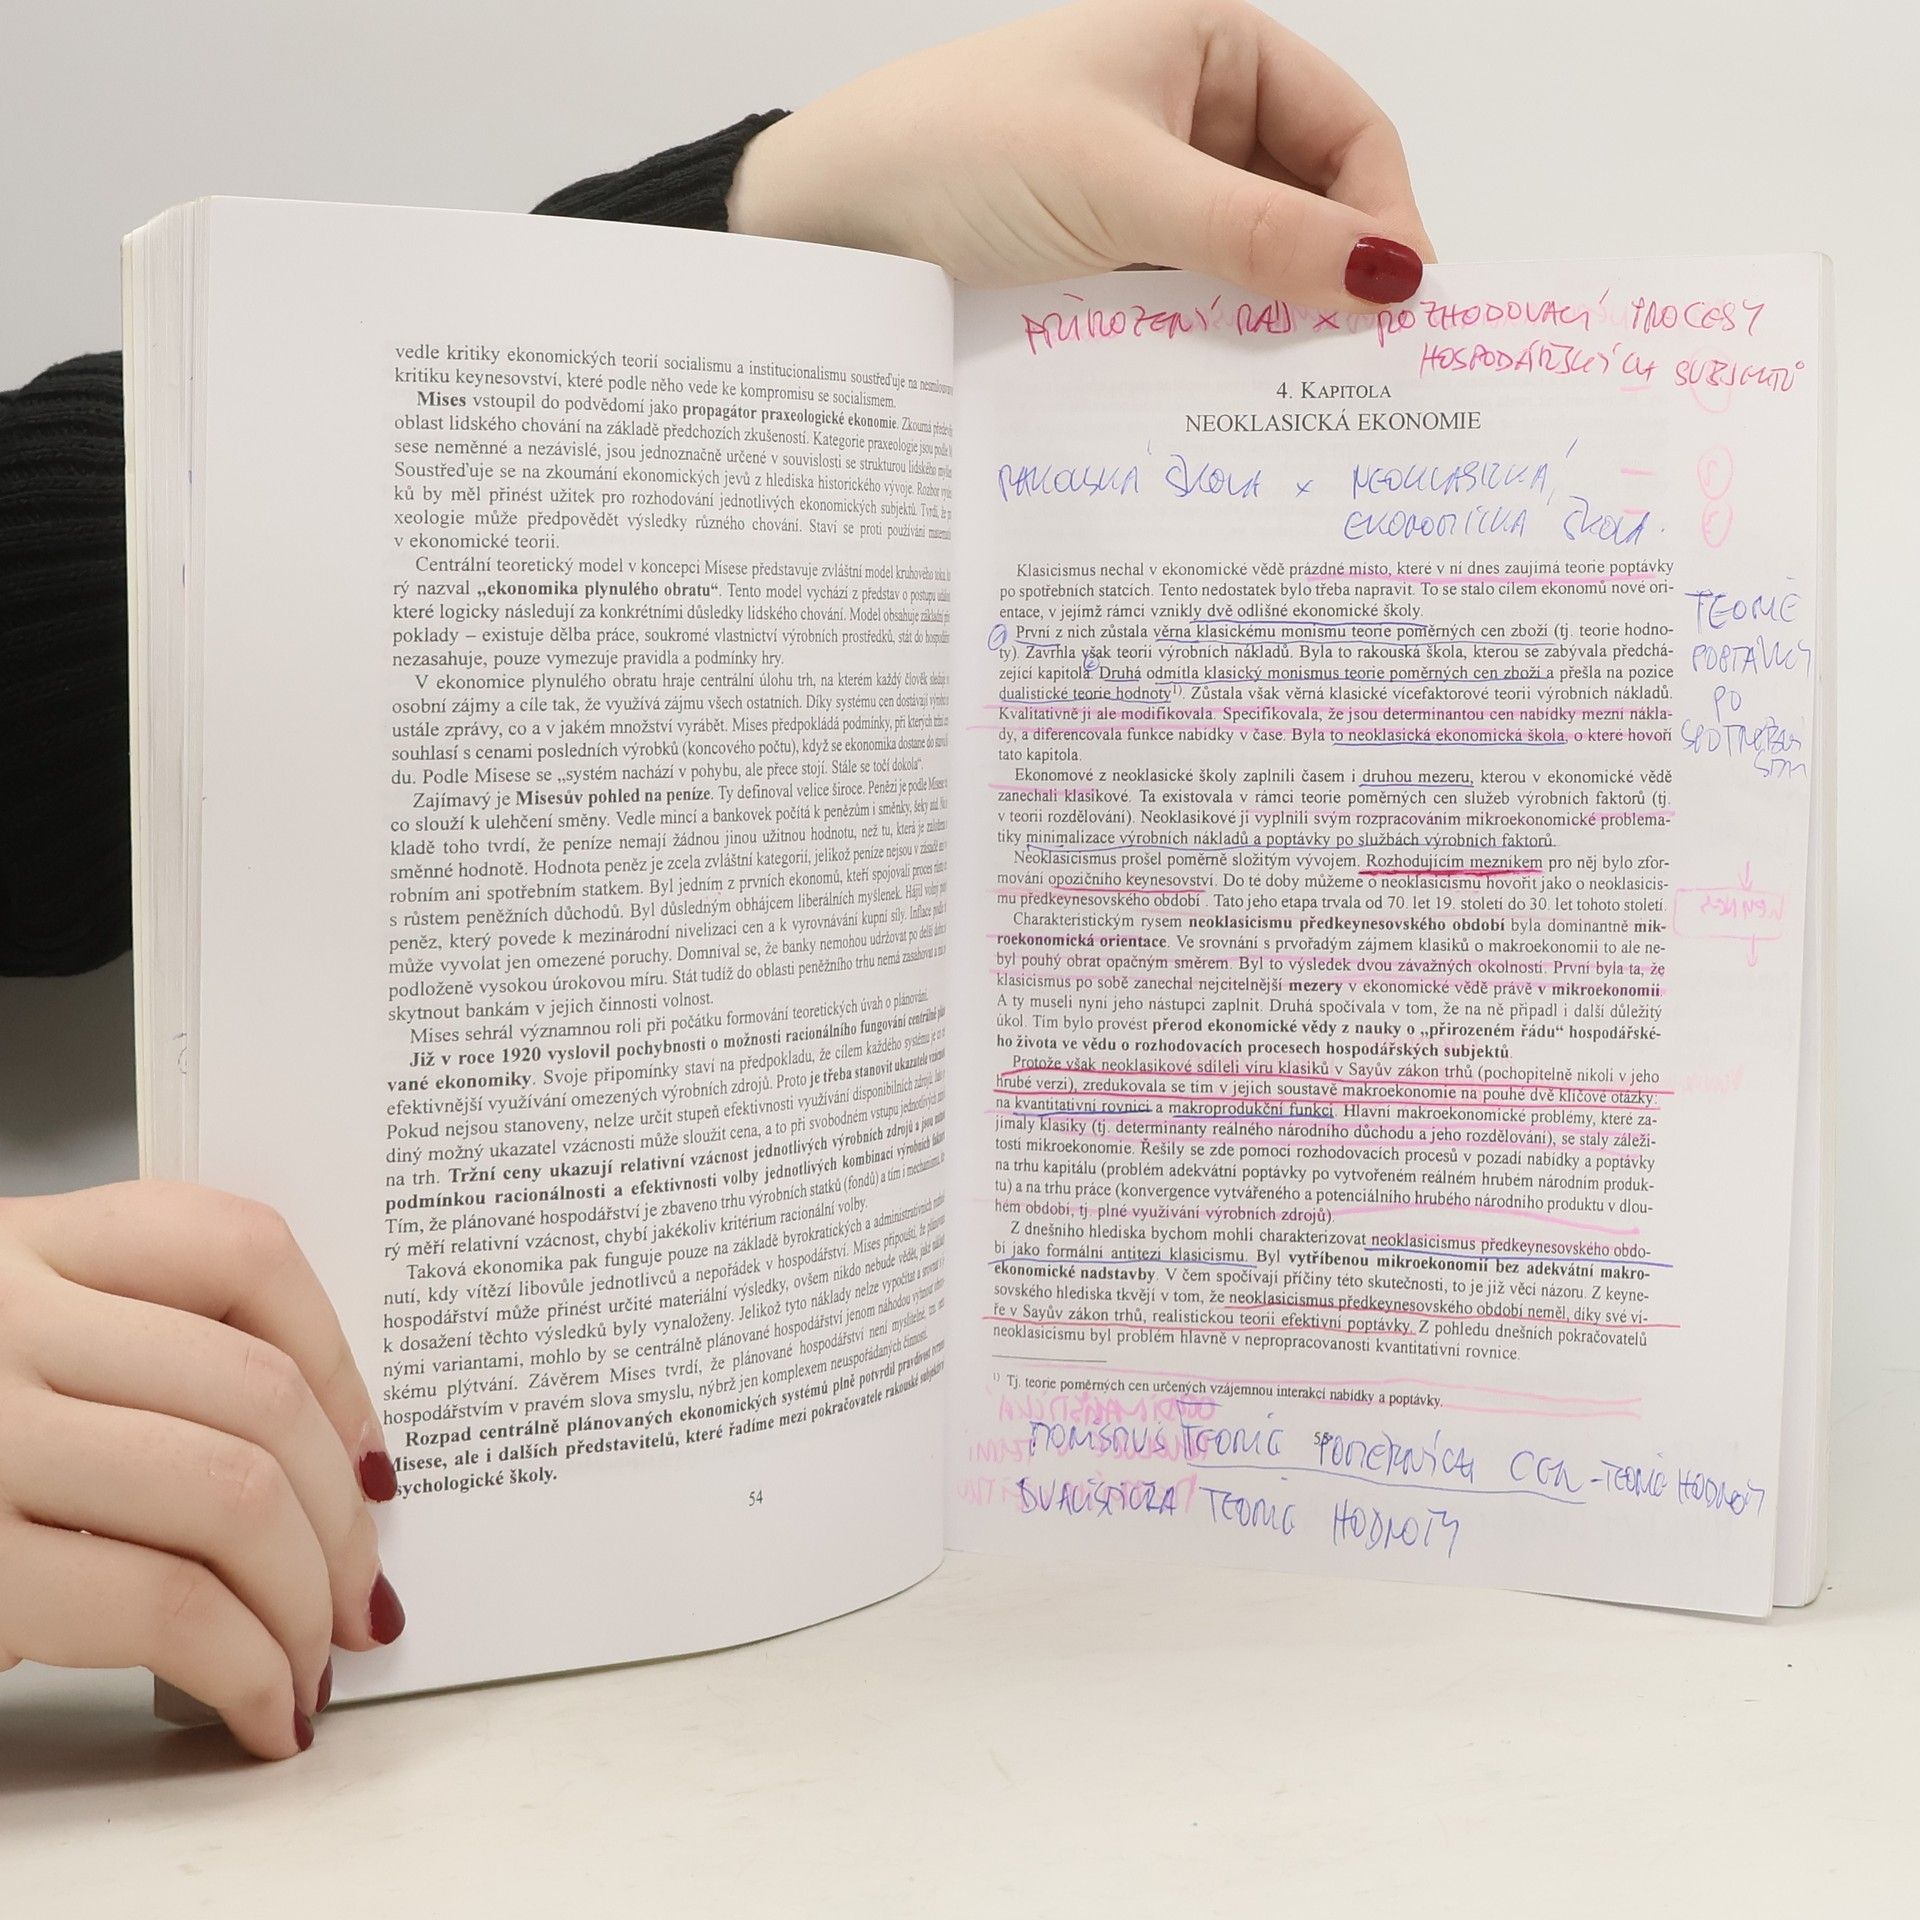 vedle kritiky ekonomických teorií socialismu a institucionalismu soustřeďuje na
kritiku keynesovství, které podle něho vede ke kompromisu se socialismem.
Mises vstoupil do podvědomí jako propagátor praxeologické ekonomie. Zkoumá
oblast lidského chování na základě předchozích zkušeností. Kategorie praxeologie jsou podle
sese neměnné a nezávislé, jsou jednoznačně určené v souvislosti se strukturou lidského
Soustřeďuje se na zkoumání ekonomických jevů z hlediska historického vývoje. Rozbor
ků by měl přinést užitek pro rozhodování jednotlivých ekonomických subjektů. Tvrdí, že
xeologie může předpovědět výsledky různého chování. Staví se proti používání
v ekonomické teorii.
Centrální teoretický model v koncepci Misese představuje zvláštní model kruhového
rý nazval „ekonomika plynulého obratu“. Tento model vychází z představ o postupu
které logicky následují za konkrétními důsledky lidského chování. Model obsahuje základní
poklady – existuje dělba práce, soukromé vlastnictví výrobních prostředků, stát do
nezasahuje, pouze vymezuje pravidla a podmínky hry.
V ekonomice plynulého obratu hraje centrální úlohu trh, na kterém každý člověk sleduje
osobní zájmy a cíle tak, že využívá zájmu všech ostatních. Díky systému cen dostávají
ustále zprávy, co a v jakém množství vyrábět. Mises předpokládá podmínky, při kterých
souhlasí s cenami posledních výrobků (koncového počtu), když se ekonomika dostane do
du. Podle Misese se „systém nachází v pohybu, ale přece stojí. Stále se točí dokola“.
Zajímavý je Misesův pohled na peníze. Ty definoval velice široce. Penězi je podle Misese
co slouží k ulehčení směny. Vedle mincí a bankovek počítá k penězům i směnky, šeky
kladě toho tvrdí, že peníze nemají žádnou jinou užitnou hodnotu, než tu, která je
směnné hodnotě. Hodnota peněz je zcela zvláštní kategorií, jelikož peníze nejsou v zásadě
robním ani spotřebním statkem. Byl jedním z prvních ekonomů, kteří spojovali proces
s růstem peněžních důchodů. Byl důsledným obhájcem liberálních myšlenek. Hájil
peněz, který povede k mezinárodní nivelizaci cen a k vyrovnávání kupní síly. Inflace
může vyvolat jen omezené poruchy. Domníval se, že banky nemohou udržovat po delší
podloženě vysokou úrokovou míru. Stát tudíž do oblasti peněžního trhu nemá zasahovat a
skytnout bankám v jejich činnosti volnost.
Mises sehrál významnou roli při počátku formování teoretických úvah o plánování.
Již v roce 1920 vyslovil pochybnosti o možnosti racionálního fungování centrálně
vané ekonomiky. Svoje připomínky staví na předpokladu, že cílem každého systému je
efektivnější využívání omezených výrobních zdrojů. Proto je třeba stanovit ukazatele
Pokud nejsou stanoveny, nelze určit stupeň efektivnosti využívání disponibilních zdrojů.
diný možný ukazatel vzácnosti může sloužit cena, a to při svobodném vstupu jednotlivých
na trh. Tržní ceny ukazují relativní vzácnost jednotlivých výrobních zdrojů a jsou
podmínkou racionálnosti a efektivnosti volby jednotlivých kombinací výrobních
Tím, že plánované hospodářství je zbaveno trhu výrobních statků (fondů) a tím i mechanismu,
rý měří relativní vzácnost, chybí jakékoliv kritérium racionální volby.
Taková ekonomika pak funguje pouze na základě byrokratických a administrativních
nutí, kdy vítězí libovůle jednotlivců a nepořádek v hospodářství. Mises připouští, že
hospodářství může přinést určité materiální výsledky, ovšem nikdo nebude vědět, jaké
k dosažení těchto výsledků byly vynaloženy. Jelikož tyto náklady nelze vypočítat a srovnat
nými variantami, mohlo by se centrálně plánované hospodářství jenom náhodou vyhnout
skému plýtvání. Závěrem Mises tvrdí, že plánované hospodářství není myslitelné,
hospodářstvím v pravém slova smyslu, nýbrž jen komplexem neuspořádaných činností.
Rozpad centrálně plánovaných ekonomických systémů plně potvrdil pravdivost
Misese, ale i dalších představitelů, které řadíme mezi pokračovatele rakouské
sychologické školy.
54
PŘIROZENÝ ŘÁD × ROZHODOVACÍ PROCESY
HOSPODÁŘSKÝCH SUBJEKTŮ
4. KAPITOLA
NEOKLASICKÁ EKONOMIE
RAKOUSKÁ ŠKOLA × NEOKLASICKÁ
EKONOMICKÁ ŠKOLA.
Klasicismus nechal v ekonomické vědě prázdné místo, které v ní dnes zaujímá teorie poptávky
po spotřebních statcích. Tento nedostatek bylo třeba napravit. To se stalo cílem ekonomů nové ori-
entace, v jejímž rámci vznikly dvě odlišné ekonomické školy.
První z nich zůstala věrna klasickému monismu teorie poměrných cen zboží (tj. teorie hodno-
ty). Zavrhla však teorii výrobních nákladů. Byla to rakouská škola, kterou se zabývala předchá-
zející kapitola. Druhá odmítla klasický monismus teorie poměrných cen zboží a přešla na pozice
dualistické teorie hodnoty¹⁾. Zůstala však věrná klasické vícefaktorové teorii výrobních nákladů.
Kvalitativně ji ale modifikovala. Specifikovala, že jsou determinantou cen nabídky mezní nákla-
dy, a diferencovala funkce nabídky v čase. Byla to neoklasická ekonomická škola, o které hovoří
tato kapitola.
TEORIE
POPTÁVKY
PO
SPOTŘEBNÍ
Ekonomové z neoklasické školy zaplnili časem i druhou mezeru, kterou v ekonomické vědě
zanechali klasikové. Ta existovala v rámci teorie poměrných cen služeb výrobních faktorů (tj.
v teorii rozdělování). Neoklasikové ji vyplnili svým rozpracováním mikroekonomické problema-
tiky minimalizace výrobních nákladů a poptávky po službách výrobních faktorů.
Neoklasicismus prošel poměrně složitým vývojem. Rozhodujícím mezníkem pro něj bylo zfor-
mování opozičního keynesovství. Do té doby můžeme o neoklasicismu hovořit jako o neoklasicis-
mu předkeynesovského období . Tato jeho etapa trvala od 70. let 19. století do 30. let tohoto století.
Charakteristickým rysem neoklasicismu předkeynesovského období byla dominantně mik-
roekonomická orientace. Ve srovnání s prvořadým zájmem klasiků o makroekonomii to ale ne-
byl pouhý obrat opačným směrem. Byl to výsledek dvou závažných okolností. První byla ta, že
klasicismus po sobě zanechal nejcitelnější mezery v ekonomické vědě právě v mikroekonomii.
A ty museli nyní jeho nástupci zaplnit. Druhá spočívala v tom, že na ně připadl i další důležitý
úkol. Tím bylo provést přerod ekonomické vědy z nauky o „přirozeném řádu“ hospodářské-
ho života ve vědu o rozhodovacích procesech hospodářských subjektů.
Protože však neoklasikové sdíleli víru klasiků v Sayův zákon trhů (pochopitelně nikoli v jeho
hrubé verzi), zredukovala se tím v jejich soustavě makroekonomie na pouhé dvě klíčové otázky:
na kvantitativní rovnici a makroprodukční funkci. Hlavní makroekonomické problémy, které za-
jímaly klasiky (tj. determinanty reálného národního důchodu a jeho rozdělování), se staly záleži-
tostí mikroekonomie. Řešily se zde pomocí rozhodovacích procesů v pozadí nabídky a poptávky
na trhu kapitálu (problém adekvátní poptávky po vytvořeném reálném hrubém národním produk-
tu) a na trhu práce (konvergence vytvářeného a potenciálního hrubého národního produktu v dlou-
hém období, tj. plné využívání výrobních zdrojů).
Z dnešního hlediska bychom mohli charakterizovat neoklasicismus předkeynesovského obdo-
bí jako formální antitezi klasicismu. Byl vytříbenou mikroekonomií bez adekvátní makro-
ekonomické nadstavby. V čem spočívají příčiny této skutečnosti, to je již věcí názoru. Z keyne-
sovského hlediska tkvějí v tom, že neoklasicismus předkeynesovského období neměl, díky své ví-
ře v Sayův zákon trhů, realistickou teorii efektivní poptávky. Z pohledu dnešních pokračovatelů
neoklasicismu byl problém hlavně v nepropracovanosti kvantitativní rovnice.
¹⁾ Tj. teorie poměrných cen určených vzájemnou interakcí nabídky a poptávky.
MONISMUS TEORIE POMĚRNÝCH CEN - TEORIE HODNOTY
DUALISTICKÁ TEORIE HODNOTY